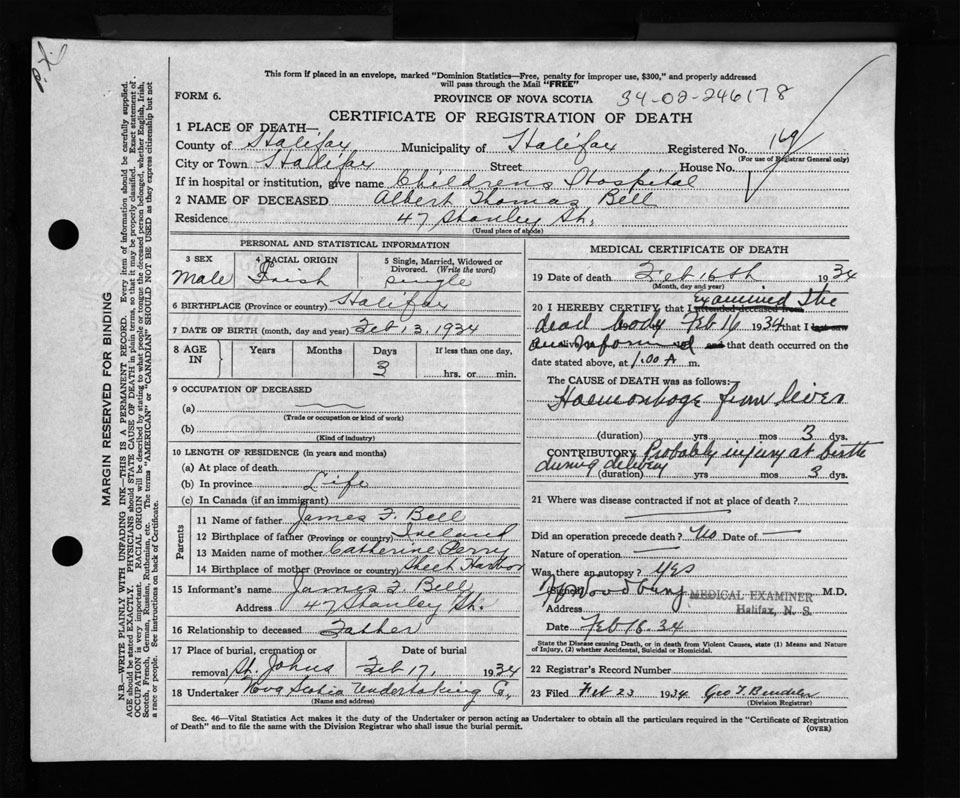 P.X.
This form if placed in an envelope, marked "Dominion Statistics—Free, penalty for improper use, $300," and properly addressed
will pass through the Mail "FREE"
FORM 6. PROVINCE OF NOVA SCOTIA 34-02-246178
CERTIFICATE OF REGISTRATION OF DEATH
1 PLACE OF DEATH—
County of Halifax Municipality of Halifax Registered No.
(For use of Registrar General only)
City or Town Halifax Street House No.
If in hospital or institution, give name Childrens Hospital
2 NAME OF DECEASED Albert Thomas Bell
Residence 47 Stanley St.
(Usual place of abode)
PERSONAL AND STATISTICAL INFORMATION
3 SEX 4 RACIAL ORIGIN 5 Single, Married, Widowed or Divorced. (Write the word)
Male Irish single
6 BIRTHPLACE (Province or country) Halifax
7 DATE OF BIRTH (month, day and year) Feb 13, 1934
8 AGE IN Years Months Days If less than one day,
3 hrs. or min.
9 OCCUPATION OF DECEASED
(a)
(Trade or occupation or kind of work)
(b)
(Kind of industry)
10 LENGTH OF RESIDENCE (in years and months)
(a) At place of death
(b) In province Life
(c) In Canada (if an immigrant)
Parents
11 Name of father James F. Bell
12 Birthplace of father (Province or country) Ireland
13 Maiden name of mother Catherine Perry
14 Birthplace of mother (Province or country) Sheet Harbor
15 Informant's name James F. Bell
Address 47 Stanley St.
16 Relationship to deceased Father
17 Place of burial, cremation or removal Date of burial
St. Johns Feb 17, 1934
18 Undertaker Nova Scotia Undertaking Co.,
(Name and address)
MEDICAL CERTIFICATE OF DEATH
19 Date of death Feb 16th 1934
(Month, day and year)
20 I HEREBY CERTIFY, that I attended deceased from examined the
dead body Feb 16 1934 that I last saw
am informed and that death occurred on the
date stated above, at 1.00 A m.
The CAUSE OF DEATH was as follows:
Haemorrhage from liver
(duration) yrs mos 3 dys.
CONTRIBUTORY Probably injury at birth
during delivery (duration) yrs mos 3 dys.
21 Where was disease contracted if not at place of death?
Did an operation precede death? No Date of —
Nature of operation
Was there an autopsy? Yes
(Signed) MEDICAL EXAMINER M.D.
Address Halifax, N. S.
Date Feb 16.34
State the Disease causing Death, or in death from Violent Causes, state (1) Means and Nature
of Injury, (2) whether Accidental, Suicidal or Homicidal.
22 Registrar's Record Number
23 Filed Feb 23 1934 Geo T.
(Division Registrar)
Sec. 46—Vital Statistics Act makes it the duty of the Undertaker or person acting as Undertaker to obtain all the particulars required in the "Certificate of Registration
of Death" and to file the same with the Division Registrar who shall issue the burial permit. (OVER)
MARGIN RESERVED FOR BINDING
N.B.—WRITE PLAINLY WITH UNFADING INK—THIS IS A PERMANENT RECORD. Every item of information should be carefully supplied.
AGE should be stated EXACTLY. PHYSICIANS should STATE CAUSE OF DEATH in plain terms, so that it may be properly classified. Exact statement of
OCCUPATION is very important. RACIAL ORIGIN will be described by stating to what people or tongue the deceased person belonged, whether English, Irish,
Scotch, French, German, Russian, Ruthenian, etc. The terms "AMERICAN" or "CANADIAN" SHOULD NOT BE USED as they express citizenship but not
a race or people. See instructions on back of Certificate.